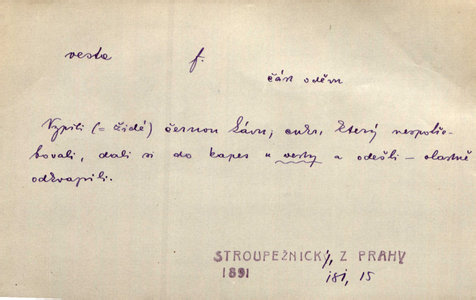 vesta f.
část oděvu
Vypili (= židé) černou kávu, cukr, který nespotře-
bovali, dali si do kapes u vesty a odešli – vlastně
odkvapili.
STROUPEŽNICKÝ, Z PRAHY
1891 181, 15